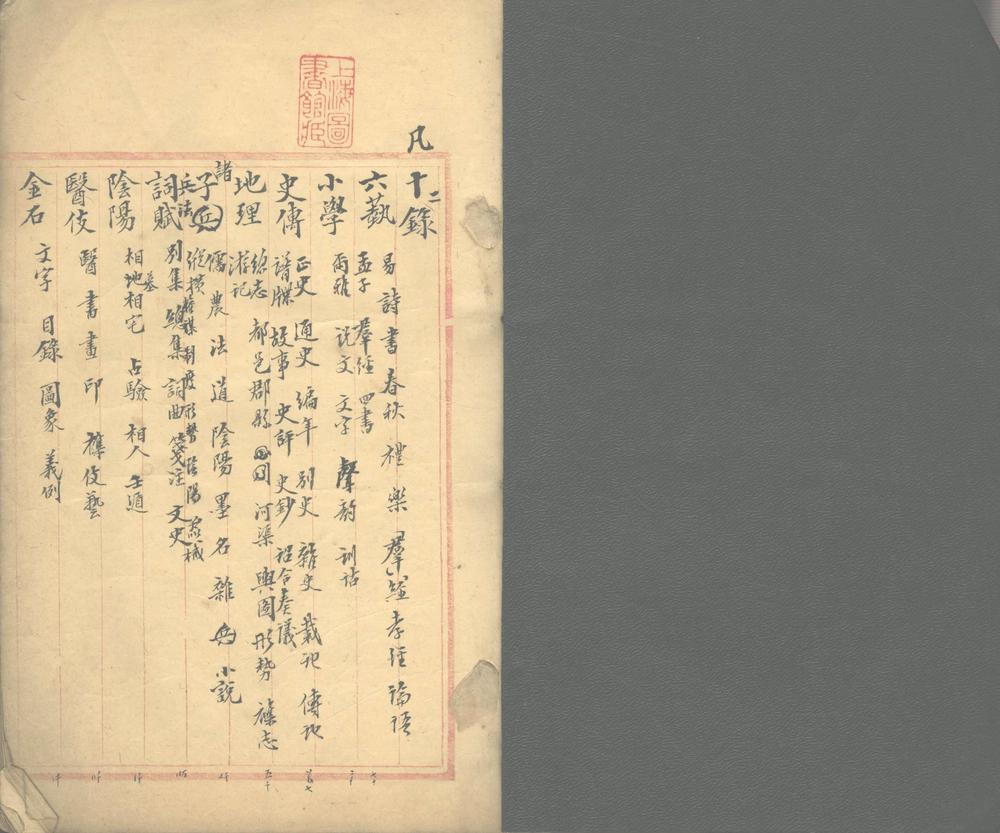 上海圖
書館藏
凡十二錄
六藝 易 詩 書 春秋 禮 樂 羣經 孝經 論語
孟子 羣經 四書
小學 爾雅 說文 文字 聲韵 訓詁
史傳 正史 通史 編年 別史 雜史 載記 傳記
譜牒 故事 史評 史鈔 詔令奏議
地理 總志 都邑郡縣 河渠 輿圖 形勢 雜志
游記
諸子 儒 農 法 道 陰陽 墨 名 雜 小說
縱橫
兵法 權謀 制度 形勢 陰陽 器械
詞賦 別集 總集 詞曲 箋注 文史
陰陽 相地 相墓 相宅 占驗 相人 壬遁
醫伎 醫 書 畫 印 雜伎藝
金石 文字 目錄 圖象 義例